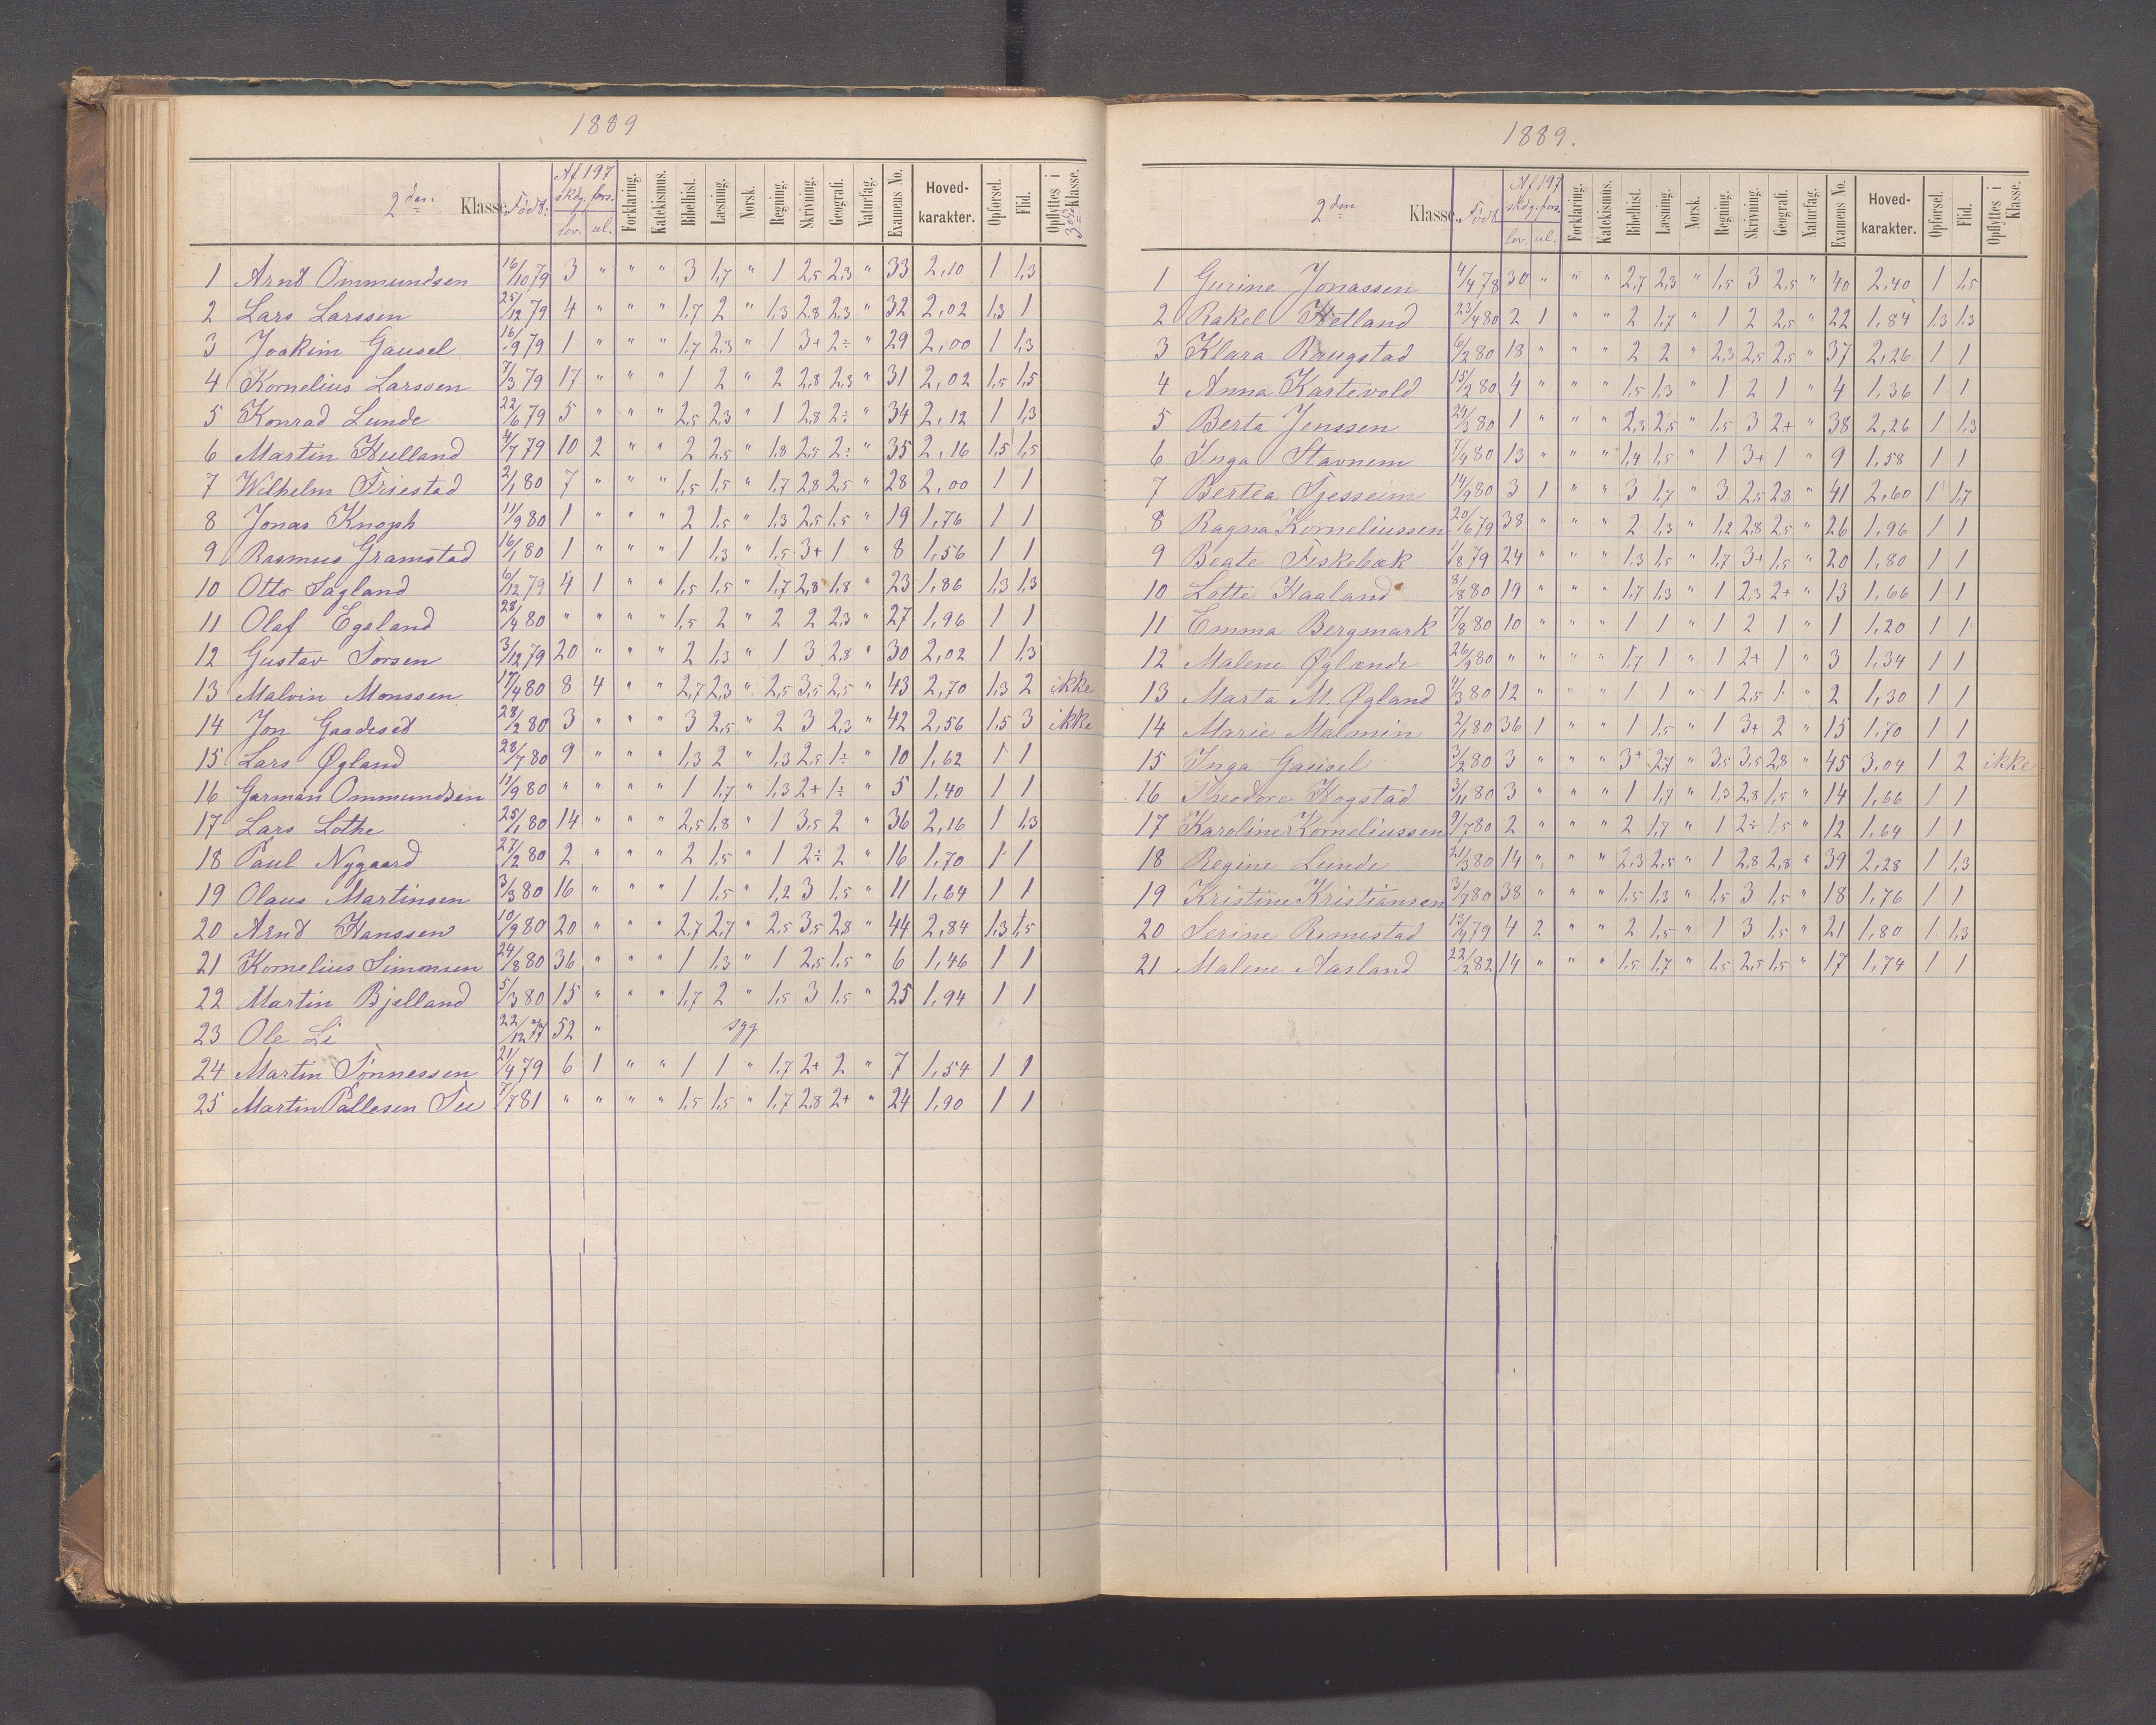 1889
2den Klasse. Født. Af 197 skdg. fors. lov. ul. Forklaring. Katekismus. Bibelhist. Læsning. Norsk. Regning. Skrivning. Geografi. Naturfag. Examens No. Hoved-karakter. Opførsel. Flid. Opflyttes i 3die Klasse.
1 Arnt Ommundsen 16/10 79 3 " " " 3 1,7 " 1 2,5 2,3 " 33 2,10 1 1,3
2 Lars Larssen 25/12 79 4 " " " 1,7 2 " 1,3 2,8 2,3 " 32 2,02 1,3 1
3 Joakim Gausel 16/9 79 1 " " " 1,7 2,3 " 1 3+ 2÷ " 29 2,00 1 1,3
4 Kornelius Larssen 7/3 79 17 " " " 1 2 " 2 2,8 2,3 " 31 2,02 1,5 1,5
5 Konrad Lunde 22/6 79 5 " " " 2,5 2,3 " 1 2,8 2÷ " 34 2,12 1 1,3
6 Martin Hulland 4/7 79 10 2 " " 2 2,5 " 1,8 2,5 2÷ " 35 2,16 1,5 1,5
7 Wilhelm Friestad 2/1 80 7 " " " 1,5 1,5 " 1,7 2,8 2,5 " 28 2,00 1 1
8 Jonas Knoph 11/9 80 1 " " " 2 1,5 " 1,3 2,5 1,5 " 19 1,76 1 1
9 Rasmus Gramstad 16/1 80 1 " " " 1 1,3 " 1,5 3+ 1 " 8 1,56 1 1
10 Otto Sagland 6/12 79 4 1 " " 1,5 1,5 " 1,7 2,8 1,8 " 23 1,86 1,3 1,3
11 Olaf Egeland 28/4 80 " " " " 1,5 2 " 2 2 2,3 " 27 1,96 1 1
12 Gustav Torsen 3/12 79 20 " " " 2 1,3 " 1 3 2,8 " 30 2,02 1 1,3
13 Malvin Monssen 17/4 80 8 4 " " 2,7 2,3 " 2,5 3,5 2,5 " 43 2,70 1,3 2 ikke
14 Jon Gaadeset 28/2 80 3 " " " 3 2,5 " 2 3 2,3 " 42 2,56 1,5 3 ikke
15 Lars Øgland 28/7 80 9 " " " 1,3 2 " 1,3 2,5 1÷ " 10 1,62 1 1
16 Garman Ommundsen 11/9 80 " " " " 1 1,7 " 1,3 2+ 1÷ " 5 1,40 1 1
17 Lars Lothe 25/1 80 14 " " " 2,5 1,8 " 1 3,5 2 " 36 2,16 1 1,3
18 Paul Nygaard 27/2 80 2 " " " 2 1,5 " 1 2÷ 2 " 16 1,70 1 1
19 Olaus Martinsen 3/3 80 16 " " " 1 1,5 " 1,2 3 1,5 " 11 1,64 1 1
20 Arnt Hanssen 10/9 80 20 " " " 2,7 2,7 " 2,5 3,5 2,8 " 44 2,84 1,3 1,5
21 Kornelius Simonsen 24/8 80 36 " " " 1 1,3 " 1 2,5 1,5 " 6 1,46 1 1
22 Martin Bjelland 5/3 80 15 " " " 1,7 2 " 1,5 3 1,5 " 25 1,94 1 1
23 Ole Li 22/12 77 52 " syg
24 Martin Tønnessen 21/4 79 6 1 " " 1 1 " 1,7 2+ 2 " 7 1,54 1 1
25 Martin Pallesen 7/7 81 " " " " 1,5 1,5 " 1,7 2,8 2+ " 24 1,90 1 1
1889.
2den Klasse. Født. Af 197 skdg. fors. lov. ul. Forklaring. Katekismus. Bibelhist. Læsning. Norsk. Regning. Skrivning. Geografi. Naturfag. Examens No. Hoved-karakter. Opførsel. Flid. Opflyttes i Klasse.
1 Gurine Jonassen 4/4 78 30 " " " 2,7 2,3 " 1,5 3 2,5 " 40 2,40 1 1,5
2 Rakel Hetland 23/4 80 2 1 " " 2 1,7 " 1 2 2,5 " 22 1,84 1,3 1,3
3 Klara Raugstad 6/2 80 18 " " " 2 2 " 2,3 2,5 2,5 " 37 2,26 1 1
4 Anna Kartevold 15/2 80 4 " " " 1,5 1,3 " 1 2 1 " 4 1,36 1 1
5 Berta Jenssen 24/3 80 1 " " " 2,3 2,5 " 1,5 3 2+ " 38 2,26 1 1,3
6 Inga Stavnem 7/4 80 13 " " " 1,4 1,5 " 1 3+ 1 " 9 1,58 1 1
7 Bertea Tjesseim 14/9 80 3 1 " " 3 1,7 " 3 2,5 2,8 " 41 2,60 1 1,7
8 Ragna Korneliussen 20/6 79 38 " " " 2 1,3 " 1,2 2,8 2,5 " 26 1,96 1 1
9 Beate Fiskebæk 1/8 79 24 " " " 1,3 1,5 " 1,7 3+ 1,5 " 20 1,80 1 1
10 Lotte Haaland 8/8 80 19 " " " 1,7 1,3 " 1 2,3 2+ " 13 1,66 1 1
11 Emma Bergmark 7/8 80 10 " " " 1 1 " 1 2 1 " 1 1,20 1 1
12 Malene Øglænde 26/9 80 " " " " 1,7 1 " 1 2+ 1 " 3 1,34 1 1
13 Marta M. Øgland 4/3 80 12 " " " 1 1 " 1 2,5 1 " 2 1,30 1 1
14 Marie Malmin 2/1 80 36 1 " " 1 1,5 " 1 3+ 2 " 15 1,70 1 1
15 Inga Gausel 3/2 80 3 " " " 3+ 2,7 " 3,5 3,5 2,8 " 45 3,04 1 2 ikke
16 Theodore Kogstad 3/11 80 3 " " " 1 1,7 " 1,3 2,8 1,5 " 14 1,66 1 1
17 Karoline Korneliussen 9/7 80 2 " " " 2 1,7 " 1 2÷ 1,5 " 12 1,64 1 1
18 Regine Lunde 21/3 80 14 " " " 2,3 2,5 " 1 2,8 2,8 " 39 2,28 1 1,3
19 Kristine Kristiansen 3/7 80 38 " " " 1,5 1,3 " 1,5 3 1,5 " 18 1,76 1 1
20 Serine Rimestad 13/4 79 4 2 " " 2 1,5 " 1 3 1,5 " 21 1,80 1 1,3
21 Malene Aasland 22/2 82 14 " " " 1,5 1,7 " 1,5 2,5 1,5 " 17 1,74 1 1